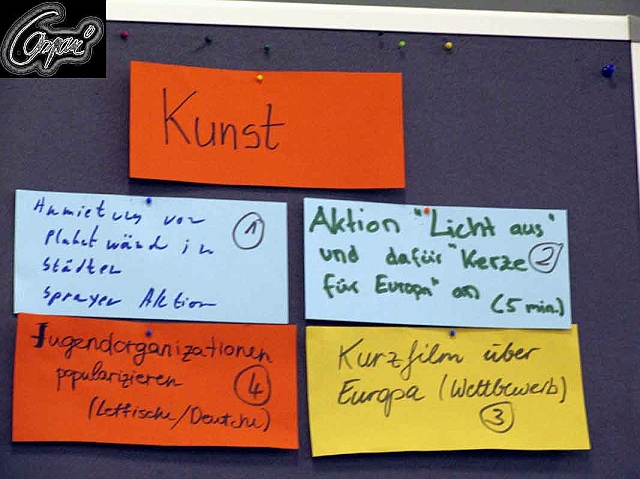 Kunst
Anmietung von
Plakatwänd in
Städten
Sprayer Aktion
1
Aktion "Licht aus"
und dafür "Kerze
für Europa" an
(5 min.)
2
Jugendorganizationen
popularizieren
(Lettische/Deutche)
4
Kurzfilm über
Europa (Wettbewerb)
3